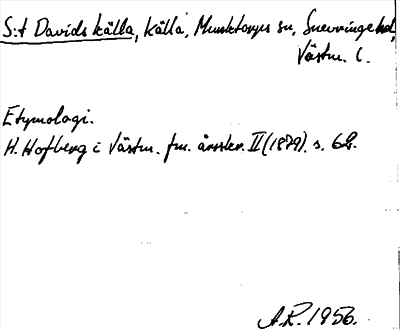 S:t Davids källa, källa, Munktorps sn, Snevringe hd,
Västm. l.
Etymologi.
H. Hofberg i Västm. fm. årsskr. II (1879). s. 62.
A.R. 1956.